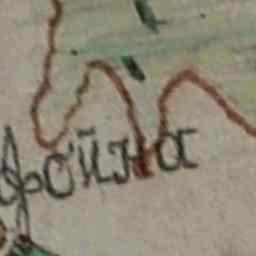 фойна